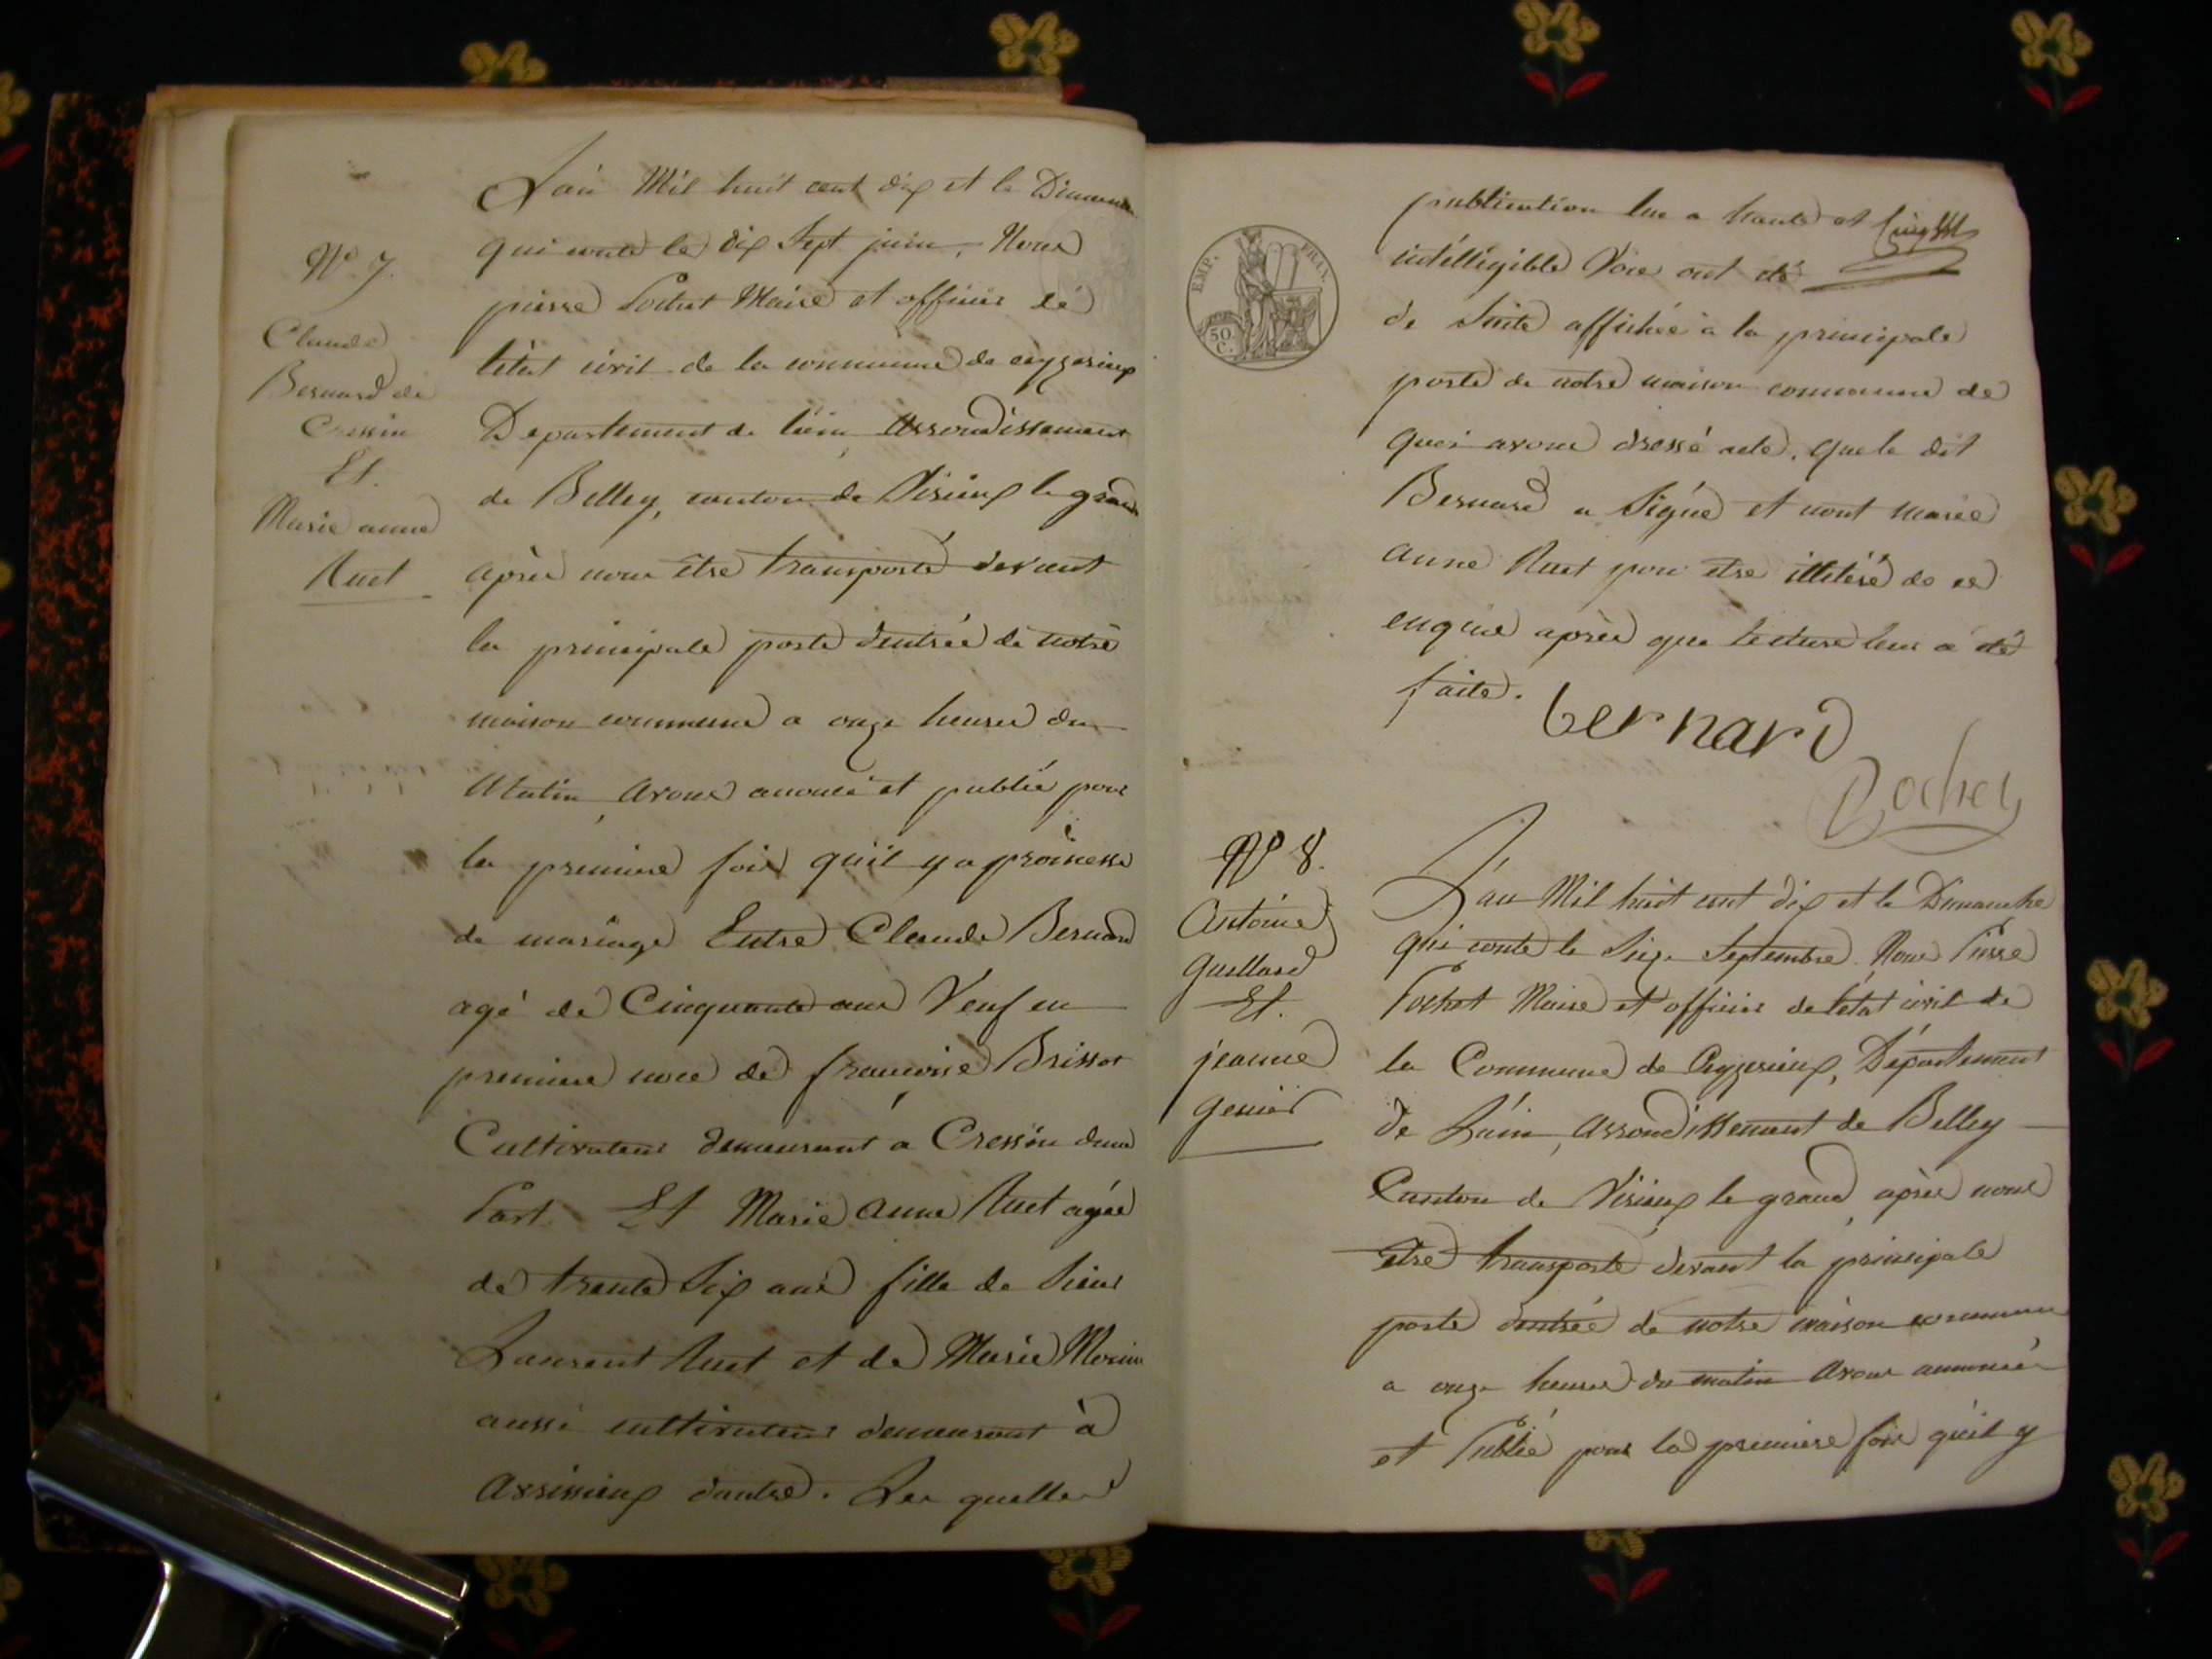 N° 7.
Claude
Bernard de
Cressin
Et.
Marie anne
Ruet
Lan Mil huit cent dix et le Dimanche
qui conte le dix Sept juin, Nous
pierre Pochet Maire et officier de
létat civil de la commune de ceyzerieux
Departement de lain arrondissement
de Belley, canton de Virieux le grand
après nous etre transporté devant
la principale porte dentrée de notre
maison commune a onze heures du
Matin, avons anoncé et publié pour
la premiere fois quil y a promesse
de mariage Entre Claude Bernard
agé de Cinquante ans Veuf en
premiere noce de francoise Brissot
Cultivateur demeurant à Cressin dune
Part. Et Marie anne Ruet agée
de trente Six ans fille de Sieur
Laurent Ruet et de Marie
aussi cultivateur demeurant à
Arsisieux dautre. Les quelles
EMP. FRAN.
50 C.
publication lue a haute et
intélligible Voie ont été
de Suite affichée à la principale
porte de notre maison commune de
quoi avons dressé acte. que le dit
Bernard a Signé et nont marie
anne Ruet pour etre illeteré de ce
enquie après que lecture leur a été
faite.
bernard
Pochet
N° 8.
Antoine
Gaillard
Et.
jeanne
genier
Lan Mil huit cent dix et le Dimanche
qui conte le Seize Septembre Nous Pierre
Pochet Maire et officier de létat civil de
la Commune de Ceyzerieux, Département
de Lain, arrondissement de Belley
Canton de Virieux le grand, après nous
etre transporté devant la principale
porte dentrée de notre maison commune
a onze heures du matin Avons annoncée
et Publié pour la premiere fois quil y